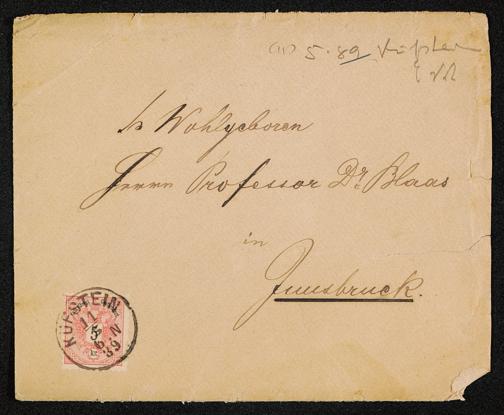 5. 89. Kufstein
Sr Wohlgeboren
Herrn Professor Dr. Blaas
in
Innsbruck.
KUFSTEIN
11
5
6 N
89